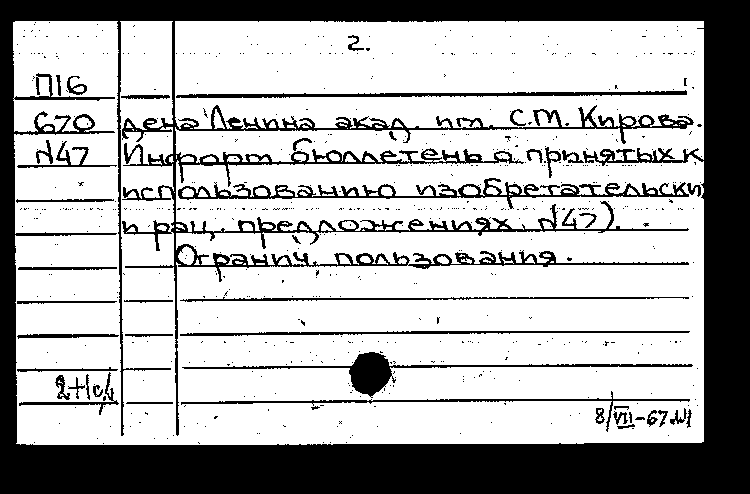 2.
П16
670 дена Ленина акад. им. С.М. Кирова.
N47 Информ. бюллетень о принятых к
использованию изобретательских
и рац. предложениях. N47).
Огранич. пользования.
8/VII-67